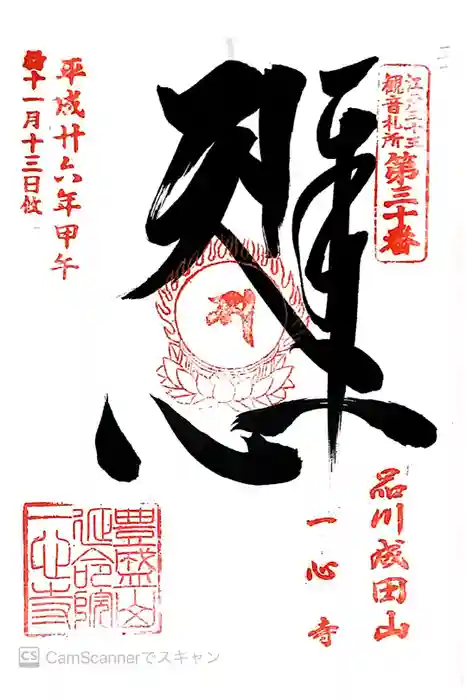 江戸三十三
観音札所
第三十番
品川成田山
一心寺
平成廿六年甲午
十一月十三日
豊盛山
延命院
一心寺
CS CamScannerでスキャン